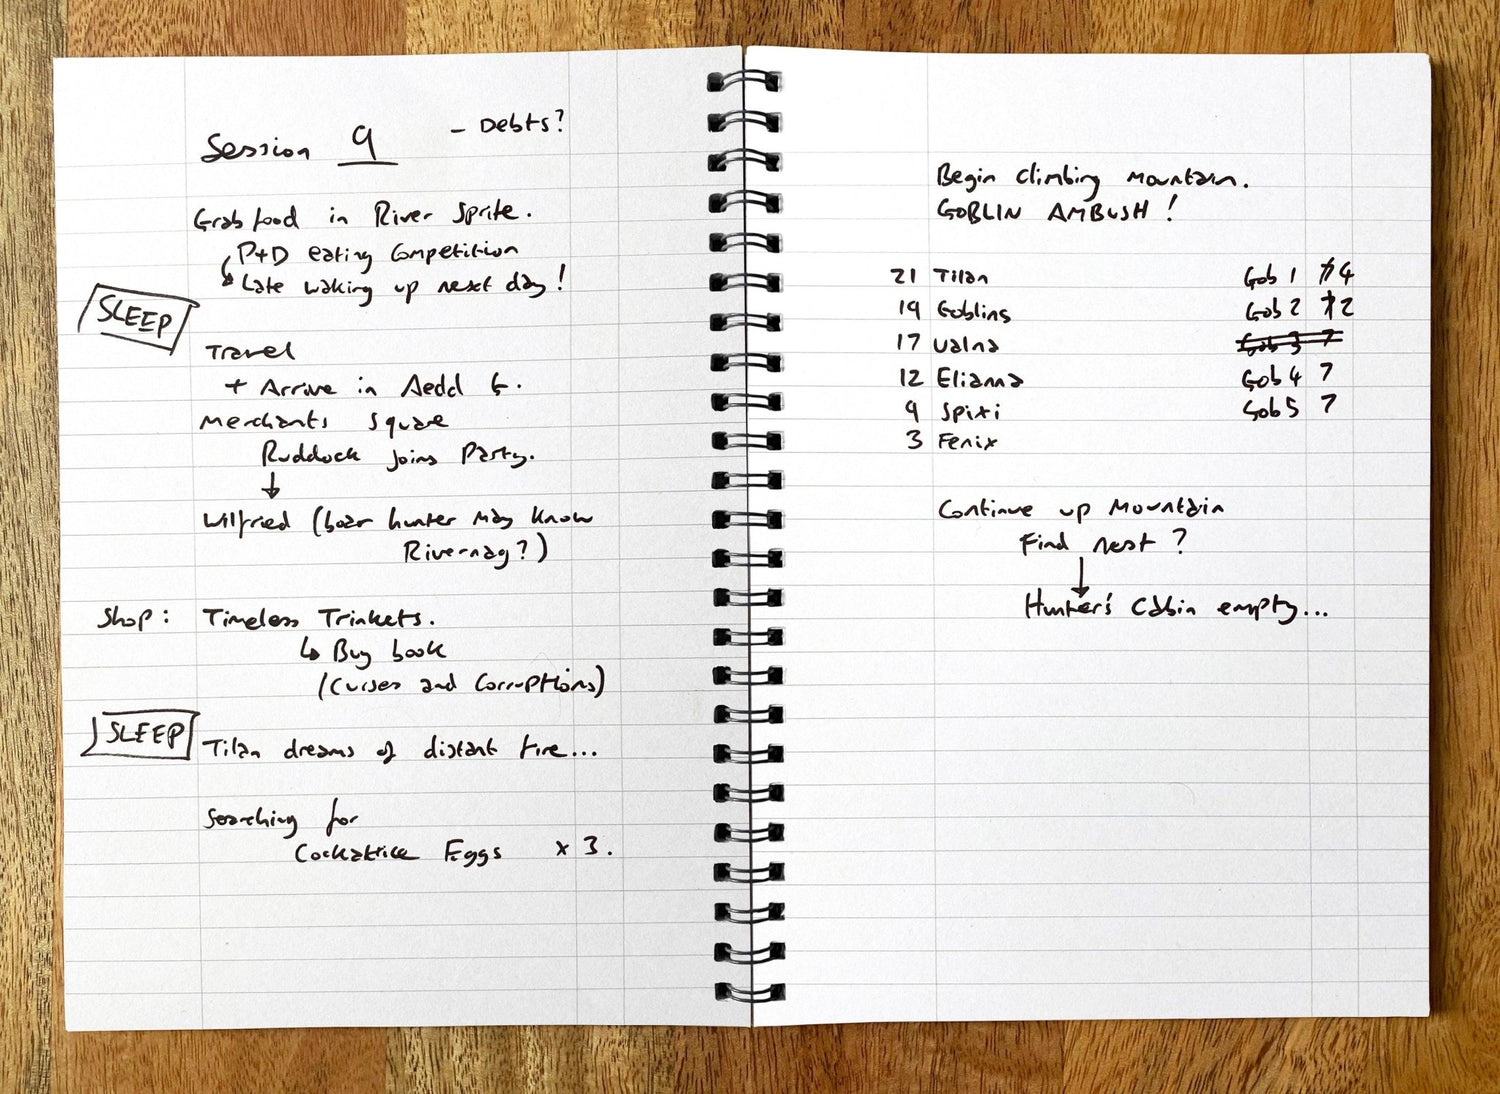 Session 9 - Debts?
Grab food in River Sprite.
P+D eating competition
↳ Late waking up next day!
SLEEP
Travel
+ Arrive in Aedd G.
Merchants Square
Ruddock joins Party.
↓
Wilfried (boar hunter may know
Rivernag?)
Shop: Timeless Trinkets.
↳ Buy book
(Curses and Corruptions)
SLEEP
Tilan dreams of distant fire...
Searching for
Cockatrice Eggs x 3.
Begin climbing mountain.
GOBLIN AMBUSH!
21 Tilan Gob 1 7 4
19 Goblins Gob 2 7 2
17 Valna Gob 3 7
12 Elianna Gob 4 7
9 Spixi Gob 5 7
3 Fenix
Continue up Mountain
Find nest?
↓
Hunter's Cabin empty...